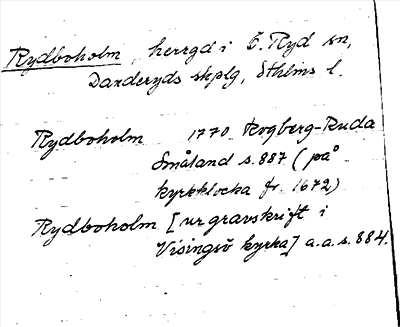 Rydboholm, herrgd i Ö. Ryd sn,
Danderyds skplg, Sthlms l.
Rydboholm 1770 Rogberg-Ruda
Småland s. 887 (på
kyrkklocka fr. 1672)
Rydboholm [ur gravskrift i
Visingsö kyrka] a.a. s. 884.